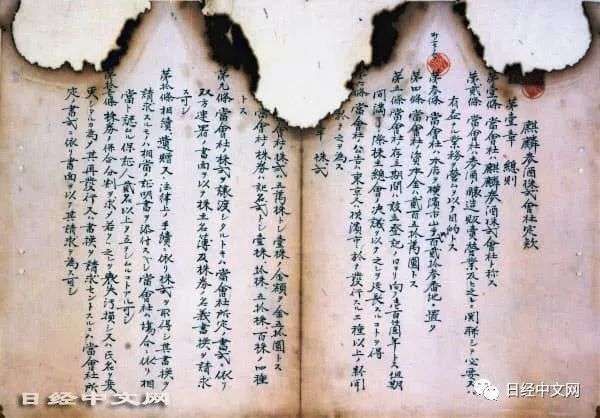 麒麟麦酒株式会社定款
第壹章 總則
第壹條 當會社ハ麒麟麦酒株式會社ト称ス
第貳條 當會社ハ麦酒醸造販賣營業及ヒ之ニ関聯シテ必要又ハ
有益ナル業務ヲ營ムヲ以テ目的トス
第参條 當會社ハ本店ヲ横濱市山手百貳拾参番地ニ置ク
第四條 當會社ノ資本金ハ貳百五拾萬圓トス
第五條 當會社ノ存立期間ハ設立登記ノ日ヨリ向フ壹百箇年トス但期
間滿了ノ際株主總會ノ決議ヲ以テ之ヲ延長スルコトヲ得
條 當會社ノ公告ハ東京又ハ横濱市ニ於テ發行スル二種以上ノ新聞
ニ於テ之ヲ為ス
章 株式
會社ノ株式ハ五萬株トシ壹株ノ金額ヲ金五拾圓トス
當會社ノ株券ハ記名式トシ壹株 拾株 五拾株 百株ノ四種
トス
第九條 當會社ノ株式ヲ譲渡シタルトキハ當會社所定ノ書式ニ依リ
双方連署ノ書面ヲ以テ株主名簿及株券ノ名義書換ヲ請求
スヘシ
第拾條 相續、遺贈又ハ法律上ノ手續ニ依リ株式ヲ取得シ其書換ヲ
請求スルモノハ相當ノ証明書ヲ添付スヘシ當會社ノ場合ニ依リ相
當ト認ムル保証人貳名以上ヲ立テシムルコトアルヘシ
第拾壹條 株券ノ併合分割ヲ求メ若クハ之ヲ毀損汚損シ又ハ氏名ヲ変
更シタル為メ其再發行又ハ書換ヲ請求セントスルニハ當會社所
定ノ書式ニ依リ書面ヲ以テ其請求ヲ為スヘシ
日经中文网
日经中文网